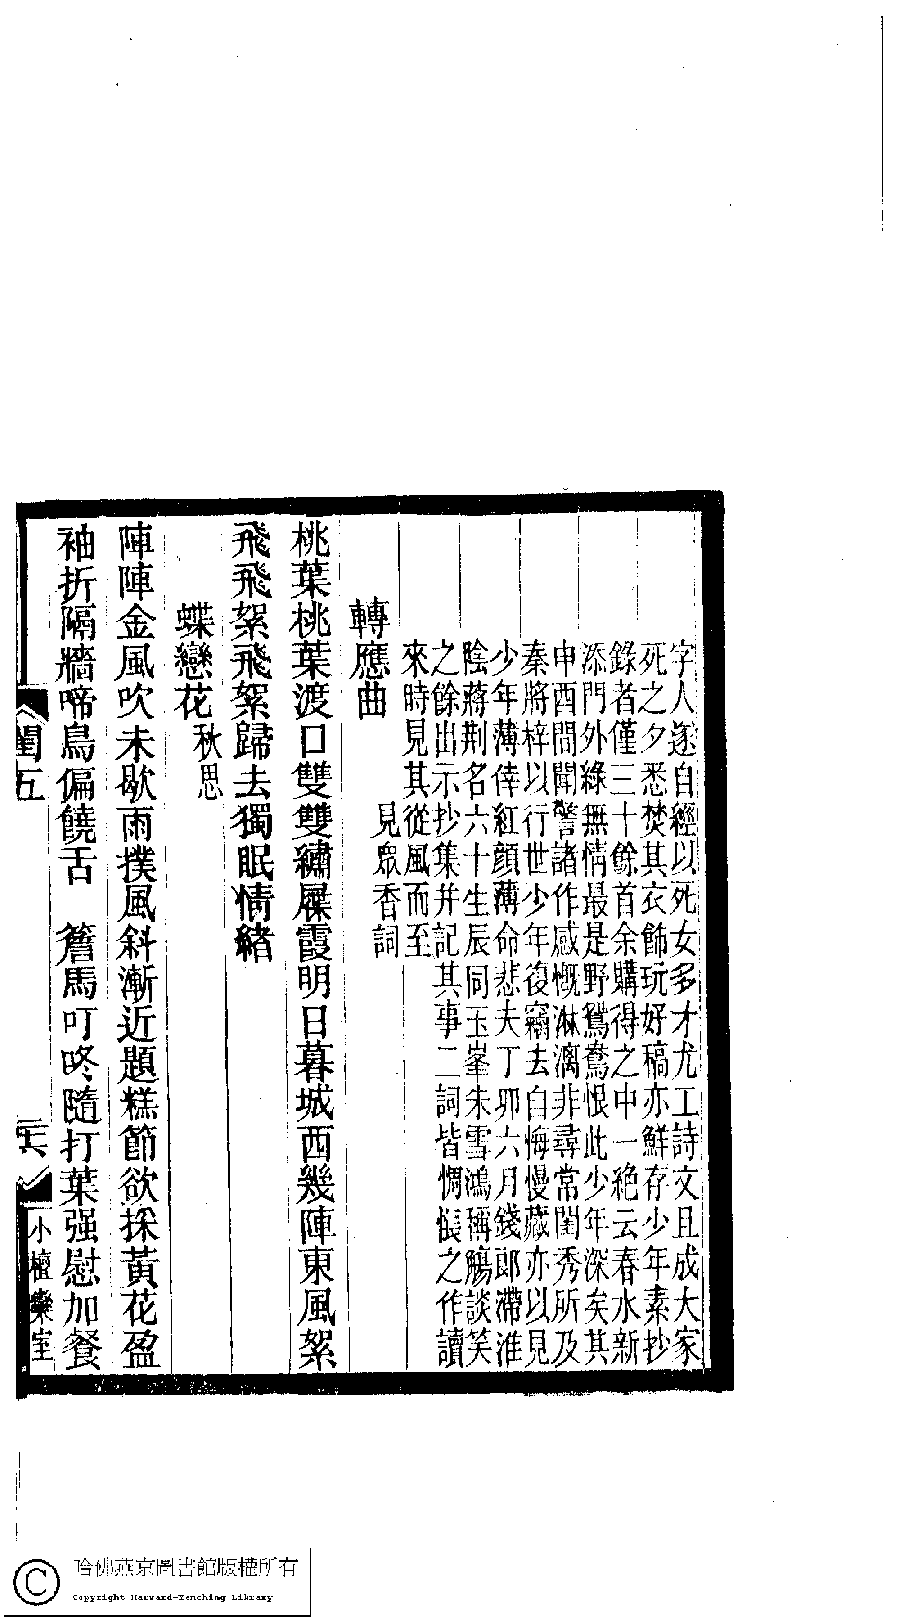 字人遂自經以死女多才尤工詩文且成大家
死之夕悉焚其衣飾玩好稿亦鮮存少年素抄
錄者僅三十餘首余購得之中一絶云春水新
添門外綠無情最是野鴛鴦恨此少年深矣其
申酉間聞警諸作感慨淋漓非尋常閨秀所及
秦將梓以行世少年復竊去自悔慢藏亦以見
少年薄倖紅顔薄命悲夫丁卯六月錢郎滯淮
陰蔣荆名六十生辰同玉峯朱雪鴻稱觴談笑
之餘出示抄集并記其事二詞皆惆悵之作讀
來時見其從風而至
見眾香詞
轉應曲
桃葉桃葉渡口雙雙繡屧霞明日暮城西幾陣東風絮
飛飛絮飛絮歸去獨眠情緒
蝶戀花 秋思
陣陣金風吹未歇雨撲風斜漸近題糕節欲採黃花盈
袖折隔牆啼鳥偏饒舌 簷馬叮咚隨打葉强慰加餐
閨五
小檀欒室
哈佛燕京圖書館版權所有
Copyright Harvard-Yenching Library